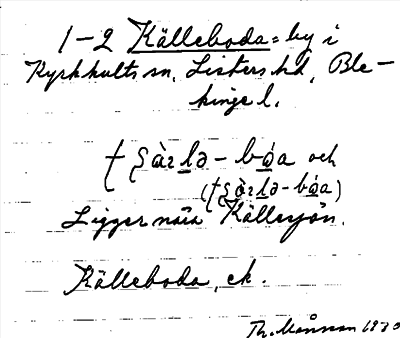 1-2 Källeboda = by i
Kyrkhults sn, Listers hd, Ble-
kinge l.
och
Ligger nära Källesjön.
Källeboda, ek.
Th. Månsson 1930